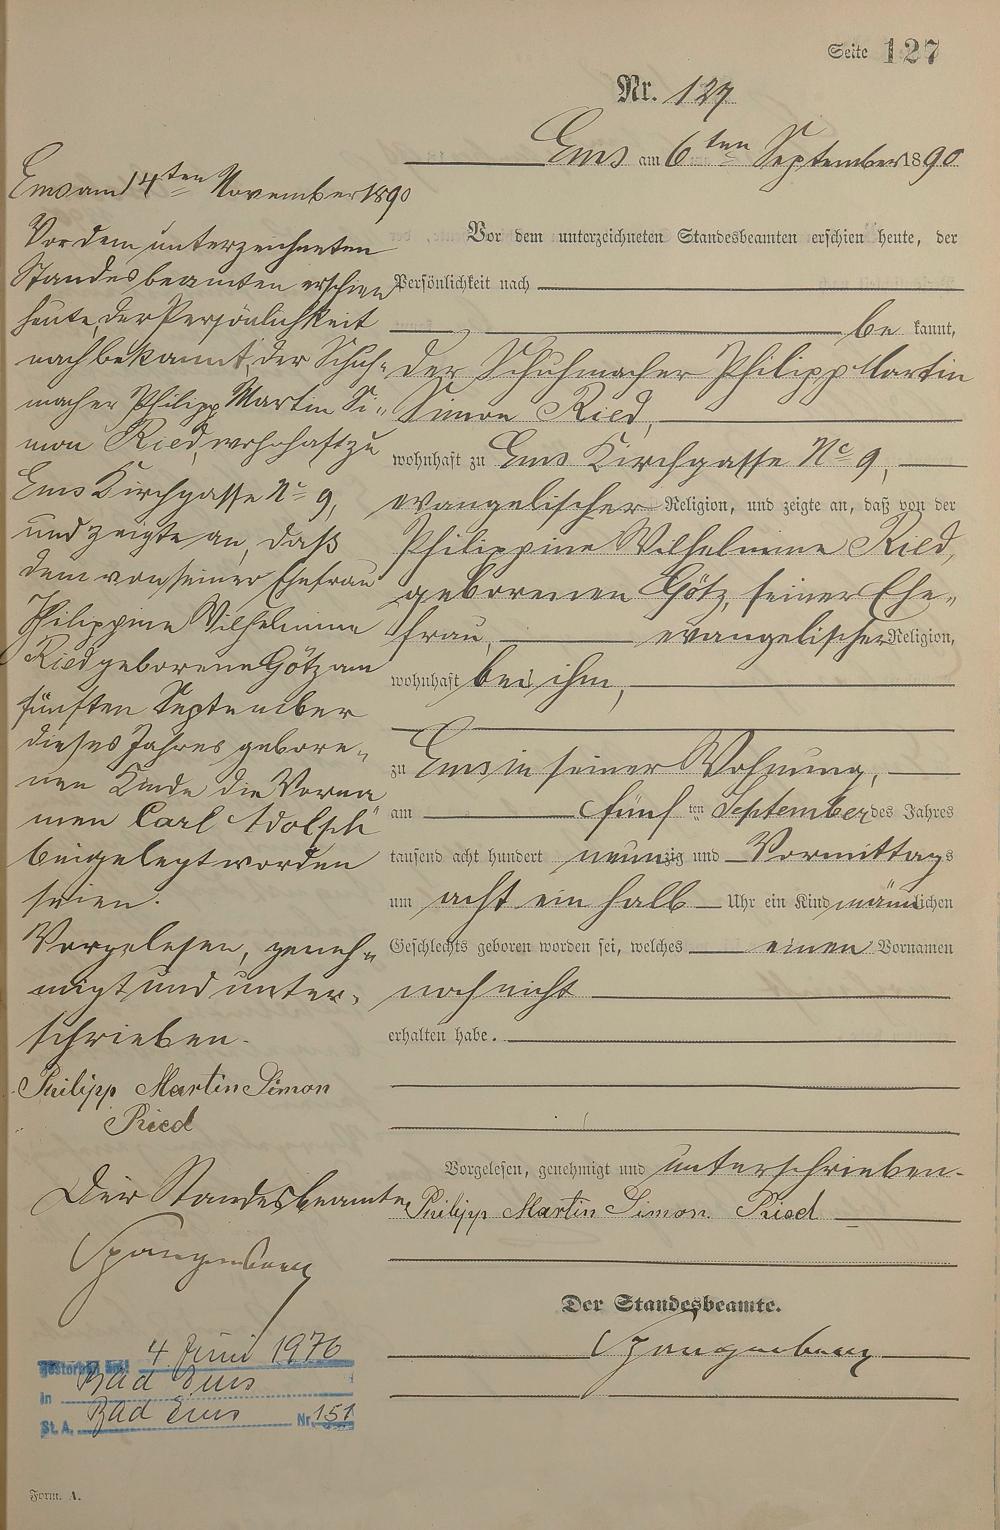 Seite 127
Nr. 127
Ems am 6ten September 1890
Vor dem unterzeichneten Standesbeamten erschien heute, der
Persönlichkeit nach
bekannt,
der Schuhmacher Philipp Martin
Simon Ried,
wohnhaft zu Ems Kirchgasse No 9,
evangelischer Religion, und zeigte an, daß von der
Philippine Wilhelmine Ried,
geborenen Götz, seiner Ehe-
frau, evangelischer Religion,
wohnhaft bei ihm,
zu Ems in seiner Wohnung,
am fünften September des Jahres
tausend acht hundert neunzig und Vormittags
um acht ein halb Uhr ein Kind männlichen
Geschlechts geboren worden sei, welches einen Vornamen
noch nicht
erhalten habe.
Vorgelesen, genehmigt und unterschrieben.
Philipp Martin Simon Ried
Der Standesbeamte.
Spangenberg
Ems am 14ten November 1890
Vor dem unterzeichneten
Standesbeamten erschien
heute, der Persönlichkeit
nach bekannt, der Schuh-
macher Philipp Martin Si-
mon Ried, wohnhaft zu
Ems Kirchgasse No 9,
und zeigte an, daß
dem von seiner Ehefrau
Philippine Wilhelmine
Ried geborene Götz am
fünften September
dieses Jahres gebore-
nen Kinde die Vorna-
men Carl Adolph
beigelegt worden
seien.
Vorgelesen, geneh-
migt und unter-
schrieben.
Philipp Martin Simon
Ried
Der Standesbeamte
Spangenberg
gestorben am: 4. Juni 1976
in Bad Ems
St. A. Bad Ems Nr. 151
Form. A.